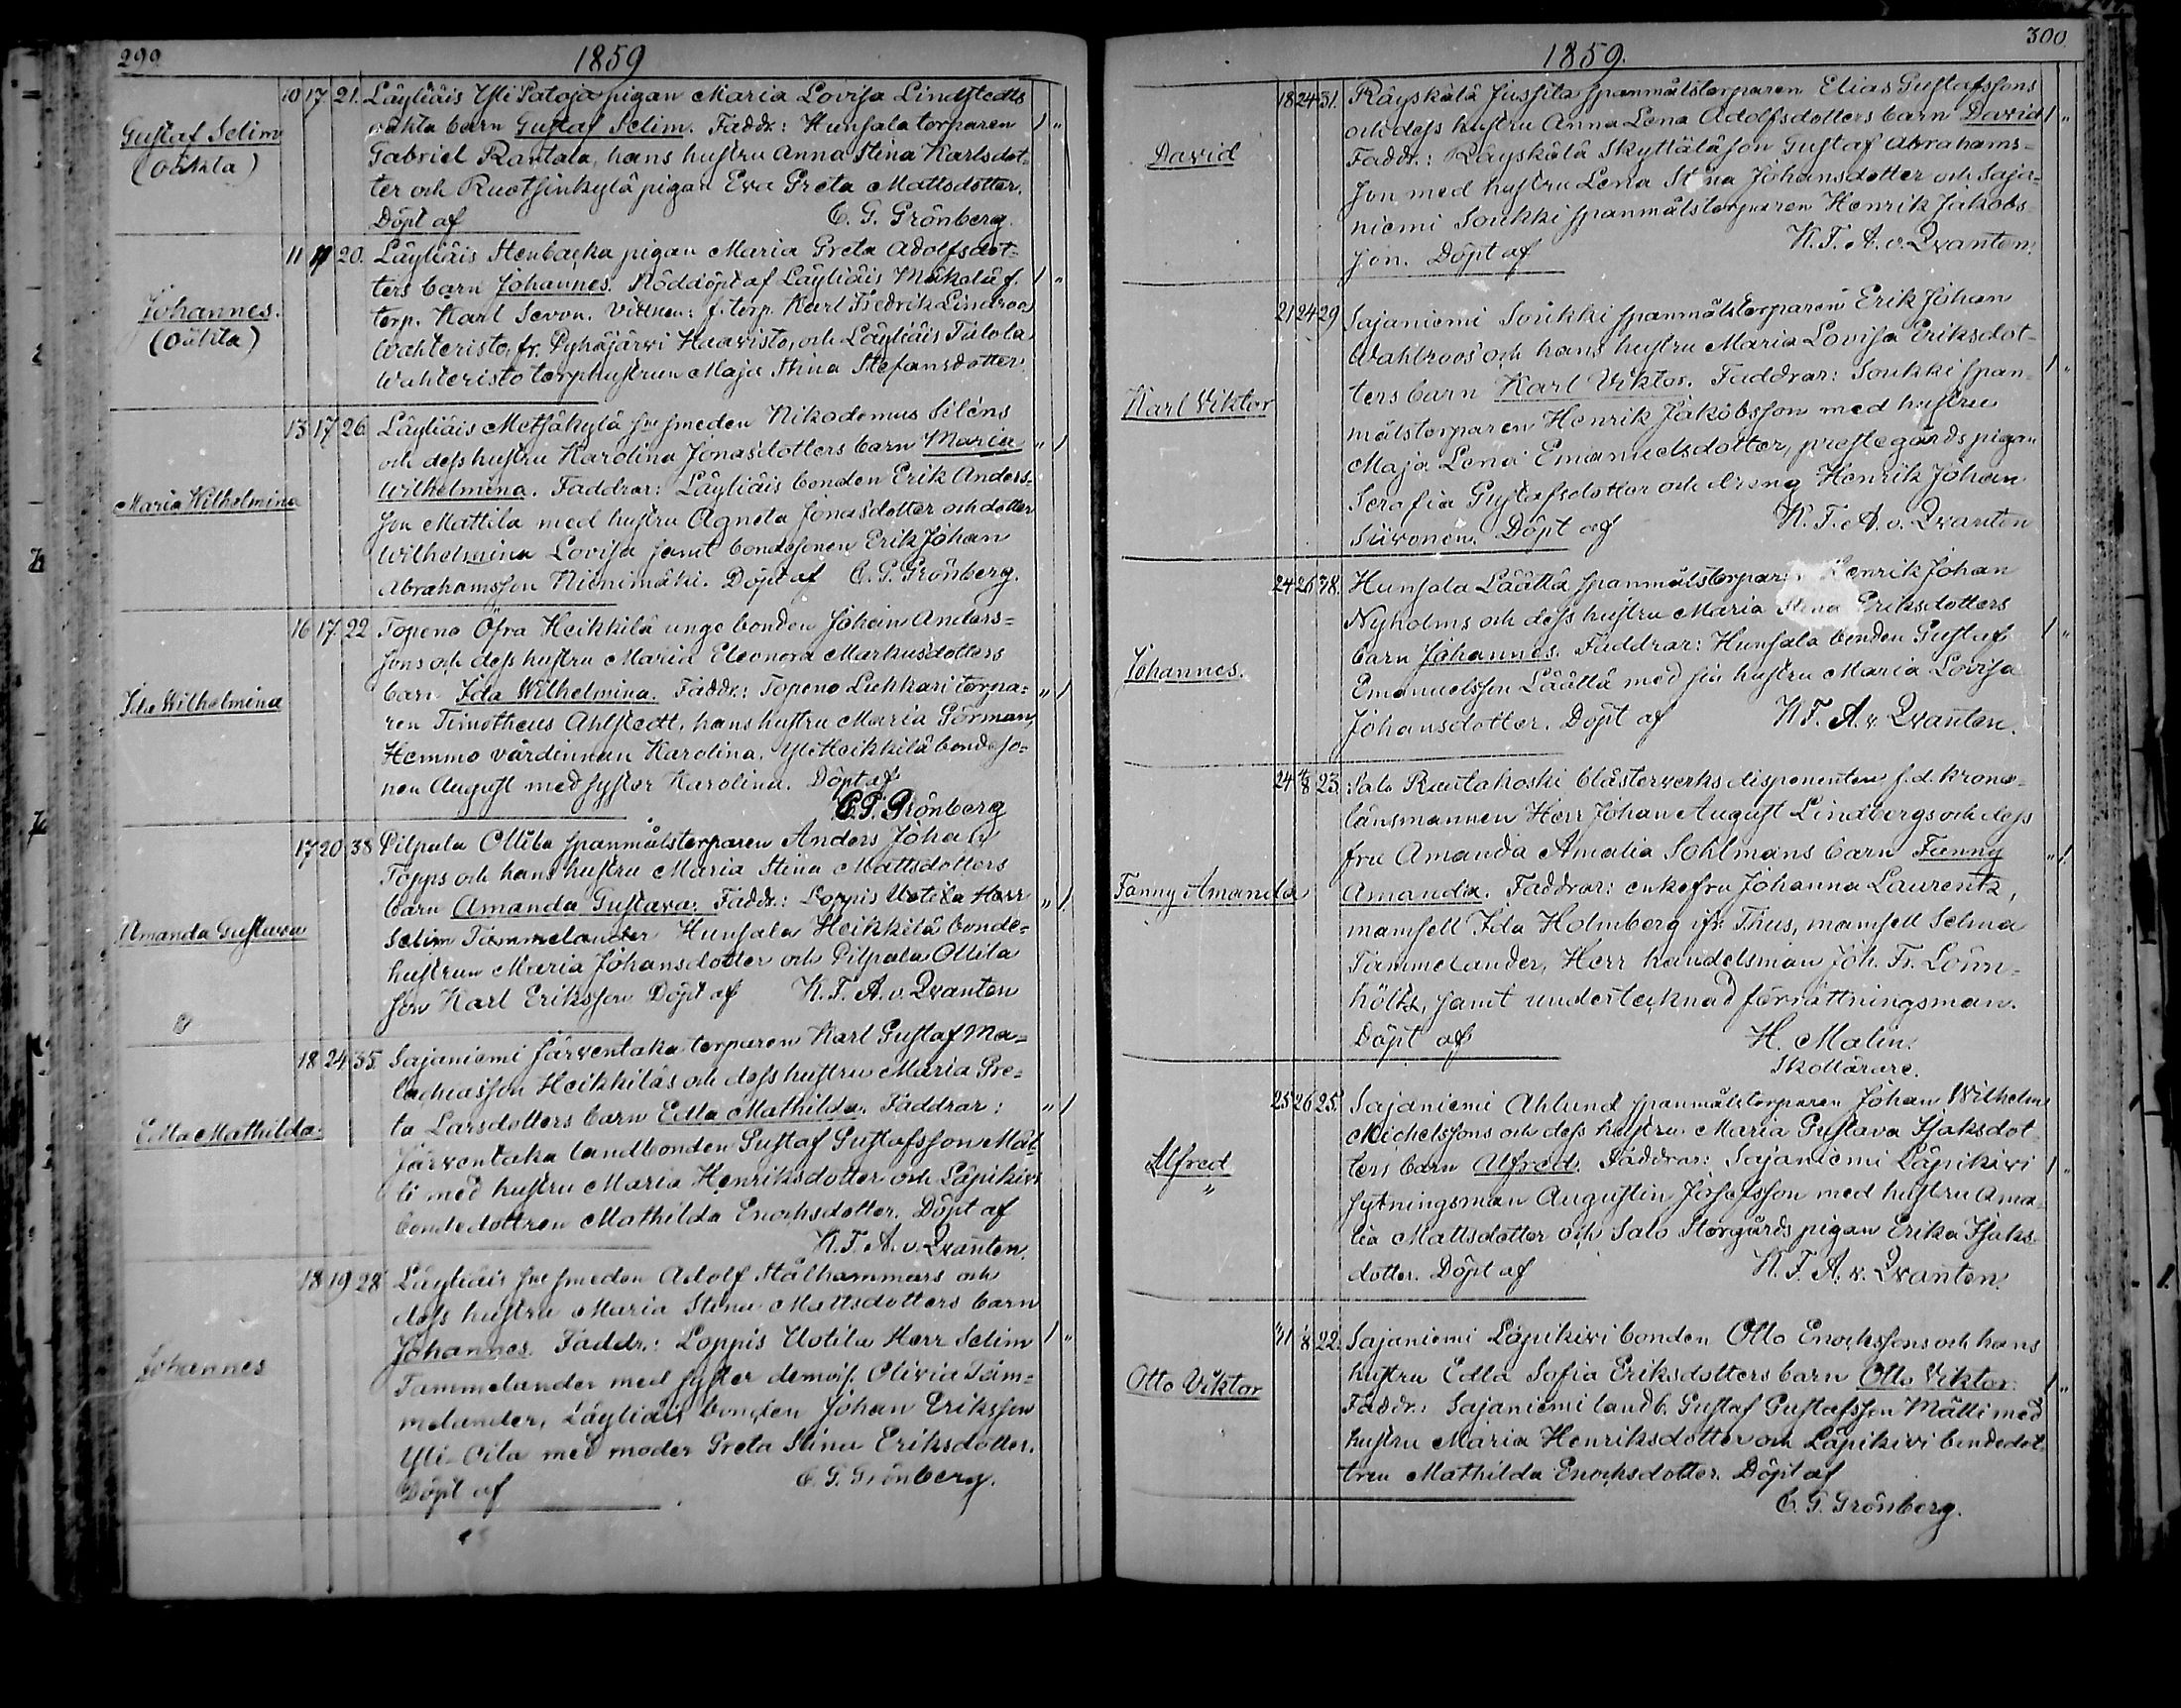 299
1859
Gustaf Selim
(oäkta)
10 17 21. Läyliäis Yli Patoja pigan Maria Lovisa Lindstedts
oäkta barn Gustaf Selim. Faddr.: Hunsala torparen 1 "
Gabriel Rantala, hans hustru Anna Stina Karlsdot-
ter och Ruotsinkylä pigan Eva Greta Mattsdotter.
Döpt af C. G. Grönberg.
Johannes.
(oäkta)
11 17 20. Läyliäis Stenbacka pigan Maria Greta Adolfsdot-
ters barn Johannes. Nöddöpt af Läyliäis Mäkelä f. 1 "
torp. Karl Sevon. Vittnen: f. torp. Karl Fredrik Lindroos
Wahteristo, fr. Pyhäjärvi Haavisto, och Läyliäis Tulola
Wahteristo torphustrun Maja Stina Stefansdotter.
Maria Wilhelmina
13 17 26. Läyliäis Metsäkylä smeden Nikodemus Siléns
och dess hustru Karolina Jonasdotters barn Maria " 1
Wilhelmina. Faddrar: Läyliäis bonden Erik Anders-
son Mattila med hustru Agneta Jonasdotter och dotter
Wilhelmina Lovisa samt bondesonen Erik Johan
Abrahamsson Niinimäki. Döpt af C. G. Grönberg.
Ida Wilhelmina
16 17 22 Topeno Öfra Heikkilä unge bonden Johan Anders-
sons och dess hustru Maria Eleonora Markusdotters
barn Ida Wilhelmina. Faddr.: Topeno Liekkari torpa- " 1
ren Timotheus Ahlstedt, hans hustru Maria Görman,
Hemmo värdinnan Karolina, Yli Heikkilä bondeso-
nen August med syster Karolina. Döpt af
C. G. Grönberg
Amanda Gustava
17 20 38 Pilpala Ollila spanmålstorparen Anders Johan
Töpps och hans hustru Maria Stina Mattsdotters
barn Amanda Gustava. Faddr.: Loppis Uotila Herr " 1
Selim Tammelander Hunsala Heikkilä bonde-
hustrun Maria Johansdotter och Pilpala Ollila
son Karl Eriksson Döpt af K. F. A. v. Qvanten
Edla Mathilda.
18 24 35. Sajaniemi Järventaka torparen Karl Gustaf Ma-
lachiasson Heikkiläs och dess hustru Maria Gre-
ta Larsdotters barn Edla Mathilda. Faddrar: " 1
Järventaka landbonden Gustaf Gustafsson Mät-
ti med hustru Maria Henriksdotter och Läpikivi
bondedottren Mathilda Enochsdotter. Döpt af
K. F. A. v. Qvanten.
Johannes
18 19 28 Läyliäis smeden Adolf Stålhammars och
dess hustru Maria Stina Mattsdotters barn
Johannes. Faddr.: Loppis Uotila Herr Selim 1 "
Tammelander med syster demois. Olivia Tam-
melander, Läyliäis bonden Johan Eriksson
Yli-Oila med moder Greta Stina Eriksdotter.
Döpt af C. G. Grönberg.
300.
1859.
David
18 24 31. Räyskälä Jussila spanmålstorparen Elias Gustafssons
och dess hustru Anna Lena Adolfsdotters barn David 1 "
Faddr.: Räyskälä Skyttälä son Gustaf Abrahams-
son med hustru Lena Stina Johansdotter och Saja-
niemi Soukki spanmålstorparen Henrik Jakobs-
son. Döpt af K. F. A. v. Qvanten.
Karl Viktor
21 24 29 Sajaniemi Soukki spanmålstorparen Erik Johan
Wahlroos och hans hustru Maria Lovisa Eriksdot-
ters barn Karl Viktor. Faddrar: Soukki span- 1 "
målstorparen Henrik Jakobsson med hustru
Maja Lena Emanuelsdotter, prestegårds pigan
Serafia Gustafsdotter och dreng Henrik Johan
Siivonen. Döpt af K. F. A. v. Qvanten
Johannes.
24 26 38. Hunsala Läätlä spanmålstorparen Henrik Johan
Nyholms och dess hustru Maria Stina Eriksdotters
barn Johannes. Faddrar: Hunsala bonden Gustaf 1 "
Emanuelsson Läätlä med sin hustru Maria Lovisa
Johansdotter. Döpt af K. F. A. v. Qvanten.
Fanny Amanda
24 8 23. Salo Rautakoski blästerverks disponenten f. d. krono-
länsmannen Herr Johan August Lindbergs och dess
fru Amanda Amalia Sohlmans barn Fanny " 1
Amanda. Faddrar: enkefru Johanna Laurentz,
mamsell Ida Holmberg ifr. Thus, mamsell Selma
Tammelander, Herr handelsman Joh. Fr. Lönn-
höltz, samt undertecknad förrättningsman.
Döpt af H. Malin.
Skollärare.
Alfred
"
25 26 25. Sajaniemi Ahlund spanmålstorparen Johan Wilhelm
Michelssons och dess hustru Maria Gustava Isaksdot-
ters barn Alfred. Faddrar: Sajaniemi Läpikivi 1 "
sytningsman Augustin Josefsson med hustru Ama-
lia Mattsdotter och Salo Storgårds pigan Erika Isaks-
dotter. Döpt af K. F. A. v. Qvanten.
Otto Viktor
31 8 22. Sajaniemi Läpikivi bonden Otto Enochssons och hans
hustru Edla Sofia Eriksdotters barn Otto Viktor. 1 "
Faddr.: Sajaniemi landb. Gustaf Gustafsson Mätti med
hustru Maria Henriksdotter och Läpikivi bondedot-
tren Mathilda Enochsdotter. Döpt af
C. G. Grönberg.